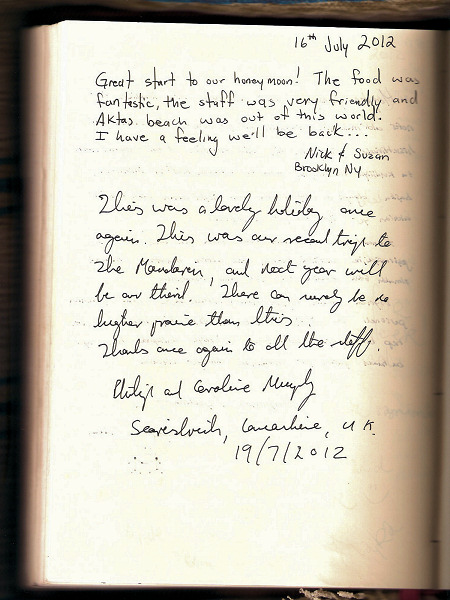 16th July 2012
Great start to our honeymoon! The food was
fantastic, the staff was very friendly and
Aktas beach was out of this world.
I have a feeling we'll be back...
Nick & Suzan
Brooklyn NY
This was a lovely holiday once
again. This was our second trip to
the Mandarin, and next year will
be our third. There can surely be no
higher praise than this.
Thanks once again to all the staff.
Philip and Caroline Murphy
Lancashire, U K.
19/7/2012